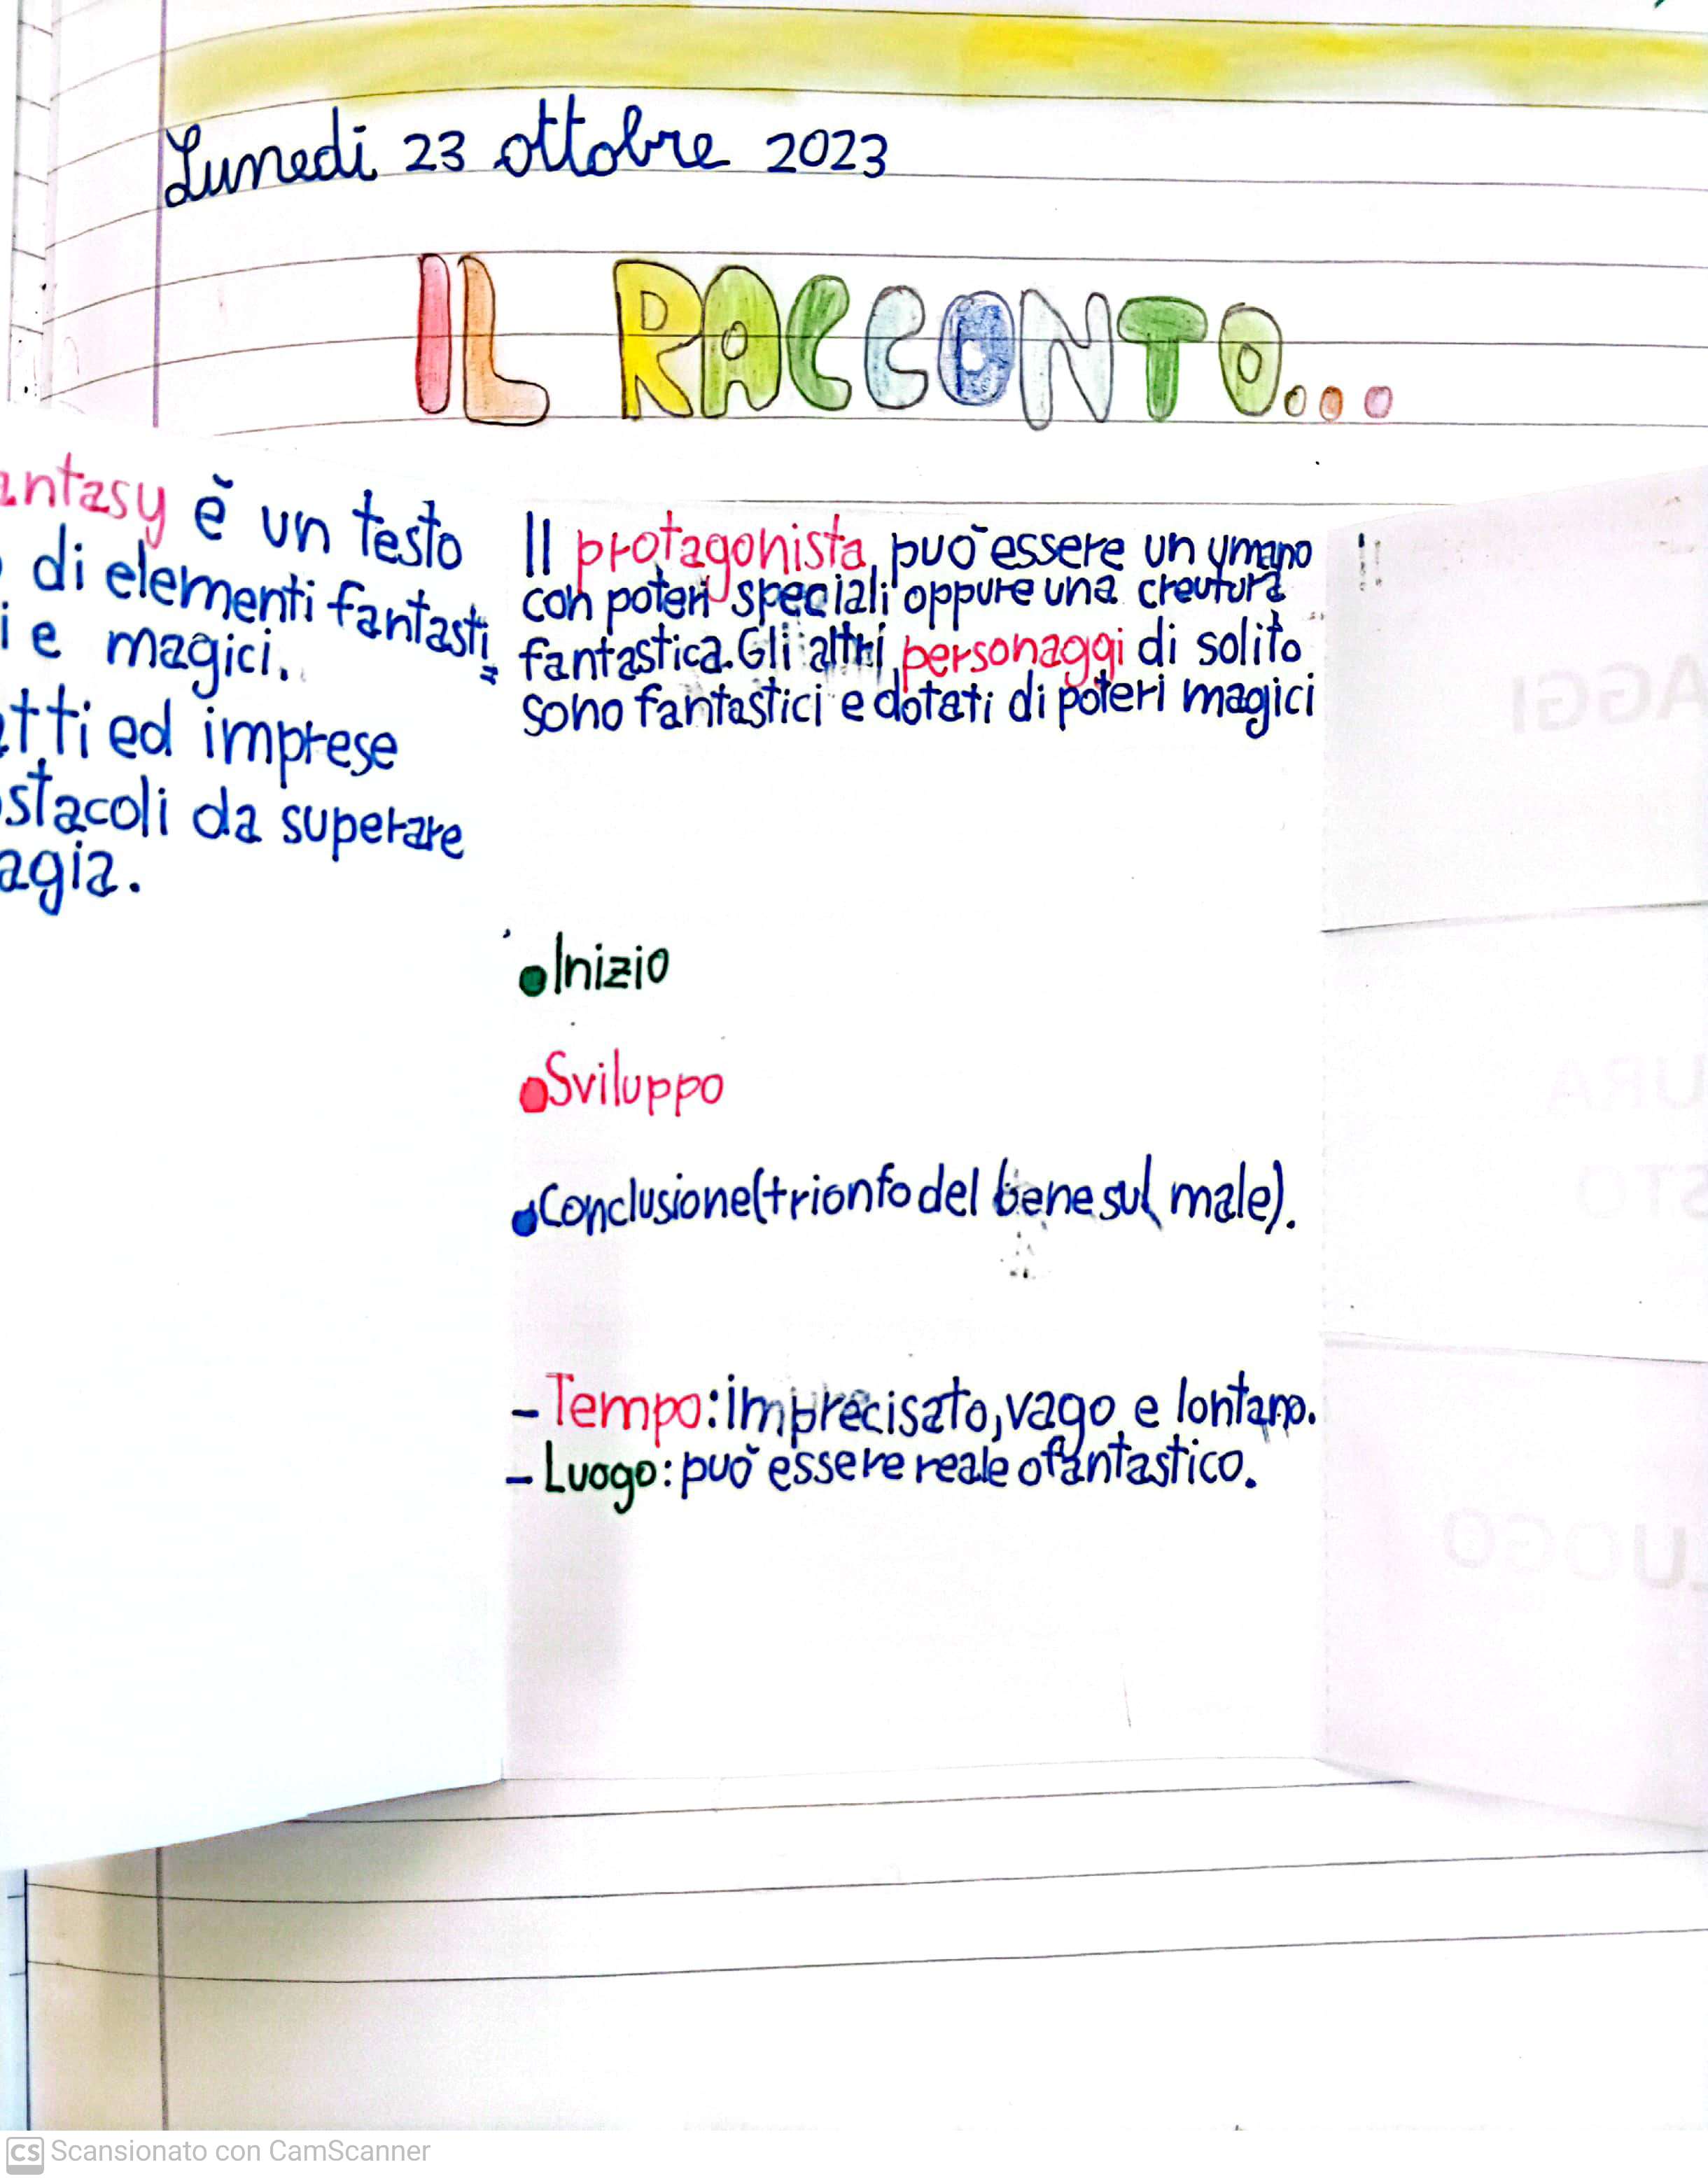 Lunedì 23 ottobre 2023
IL RACCONTO...
antasy è un testo
di elementi fantasti=
i e magici.
tti ed imprese
stacoli da superare
agia.
Il protagonista può essere un umano
con poteri speciali oppure una creatura
fantastica. Gli altri personaggi di solito
sono fantastici e dotati di poteri magici
Inizio
Sviluppo
Conclusione (trionfo del bene sul male).
- Tempo: imprecisato, vago e lontano.
- Luogo: può essere reale o fantastico.
AGGI
URA
STO
LUOGO
CS Scansionato con CamScanner